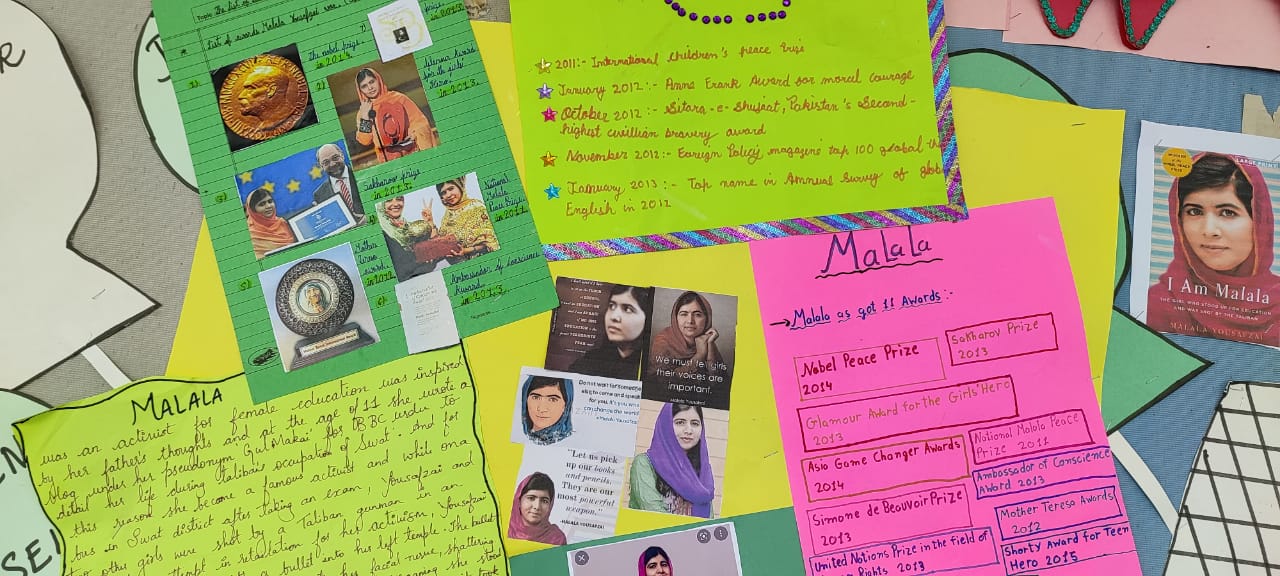 List of awards Malala Yousafzai won
1)
The nobel prize
in 2014.
2)
Glamour Award
for the girls'
Hero
in 2013.
3)
Sakharov prize
in 2013.
National
Malala
Peace Prize
in 2011.
5)
Mother
Teresa
award
in 2012
6)
Ambassador of Conscience
Award
in 2013.
2011:- International children's peace prize
January 2012:- Anne Frank Award for moral courage
October 2012:- Sitara-e-Shujaat, Pakistan's Second-
highest civillian bravery award
November 2012:- Foreign Policy magazine top 100 global
January 2013:- Top name in Annual Survey of
English in 2012
LARGE PRINT
I Am Malala
THE GIRL WHO STOOD UP FOR EDUCATION
AND WAS SHOT BY THE TALIBAN
MALALA YOUSAFZAI
Malala
→ Malala as got 11 Awards:-
Nobel Peace Prize
2014
Sakharov Prize
2013
Glamour Award for the Girls' Hero
2013
Asia Game Changer Awards
2014
National Malala Peace
Prize 2011
Simone de Beauvoir Prize
2013
Ambassador of Conscience
Award 2013
Mother Teresa Awards
2012
United Nations Prize in the field of
Rights 2013
Shorty Award for Teen
Hero 2015
We must tell girls
their voices are
important.
Do not wait for someone
else to come and speak
for you. It's you who
can change the world
"Let us pick
up our books
and pencils.
They are our
most powerful
weapon."
-MALALA YOUSAFZAI
MALALA
was an activist for female education was inspired
by her father's thoughts and at the age of 11 she wrote a
blog under her pseudonym Gul Makai for BBC urdu to
detail her life during Taliban's occupation of Swat. And for
this reason she became a famous activist and while on a
bus in Swat district after taking a exam, Yousafzai and
two other girls were shot by a Taliban gunman in an
attempt in retaliation for her activism, Yousafzai
a bullet into his left temple. The bullet
her facial nerve, shattering
she stood